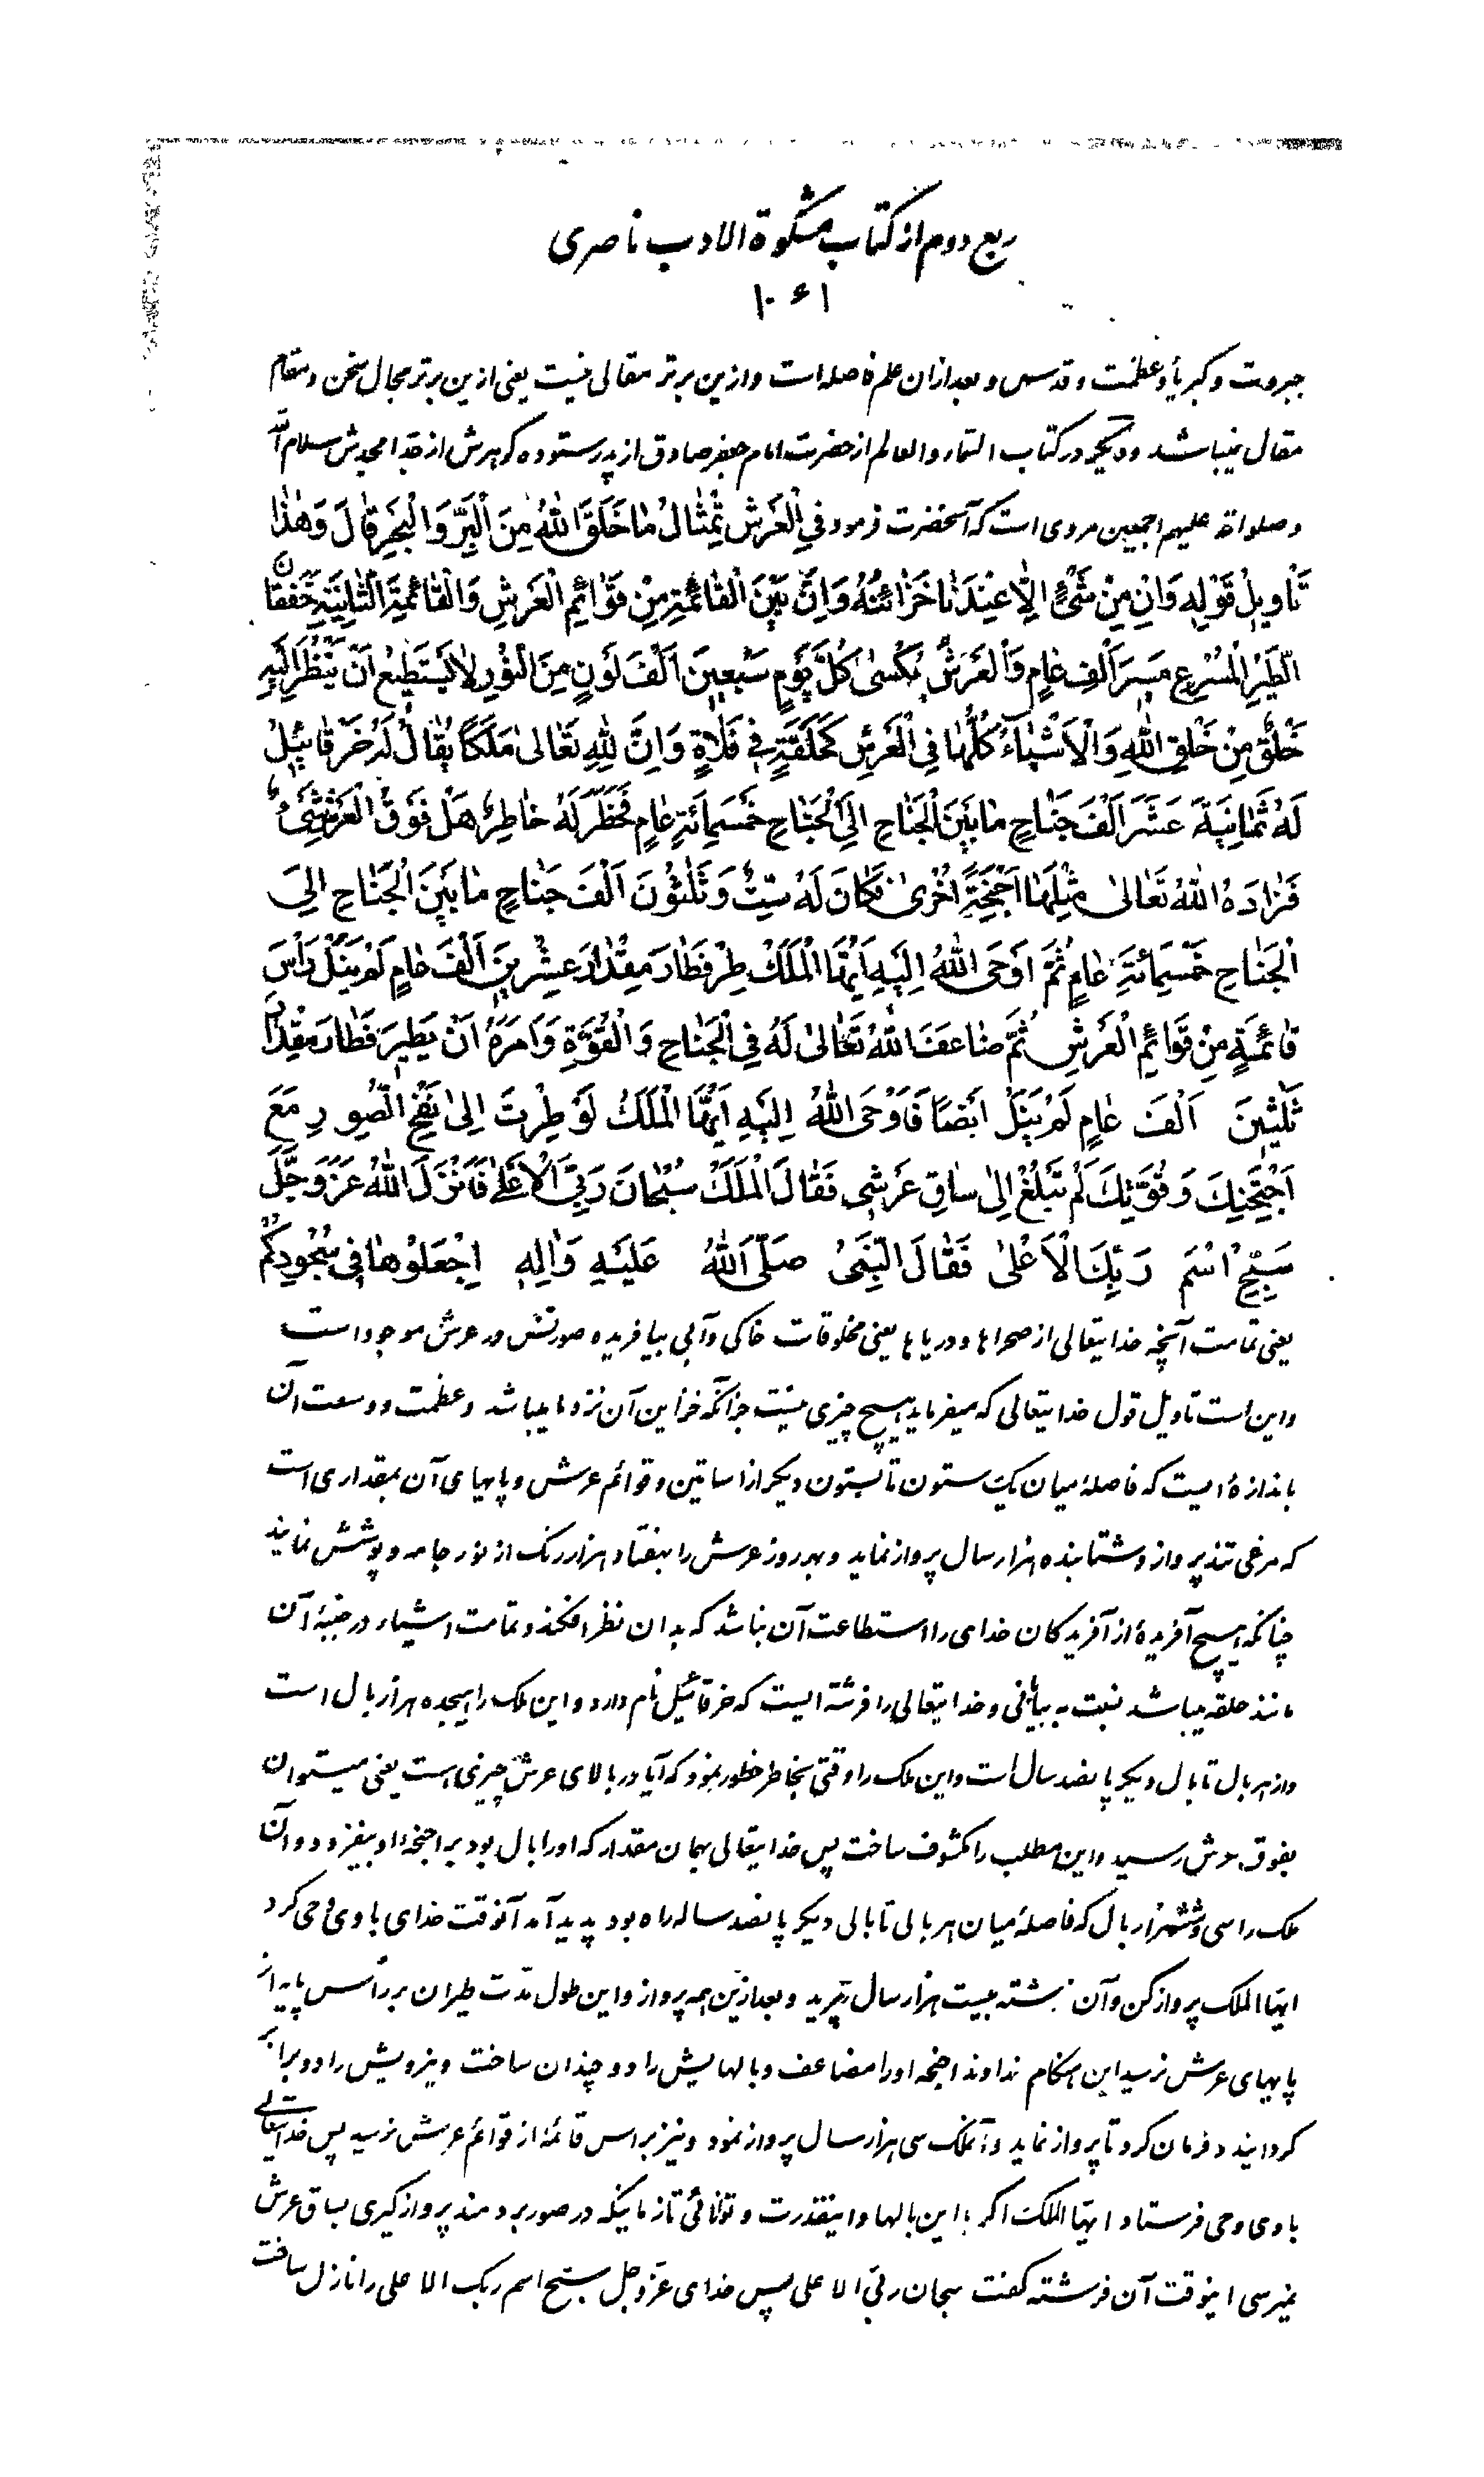 ربع دوم از کتاب مشکوة الادب ناصری
۱۰۶۱
جبروت و کبریاء و عظمت و قدس و بعد از آن علم فاصله است و ازین برتر مقالی نیست یعنی ازین برتر مجال سخن و مقام
مقال نمیباشد و دیگر در کتاب السماء و العالم از حضرت امام جعفر صادق از پدر ستوده گوهرش از جد امجدش سلام الله
و صلواته علیهم اجمعین مروی است که آنحضرت فرمود فِی الْعَرْشِ تِمْثٰالُ مٰا خَلَقَ اللّٰهُ مِنَ الْبَرِّ وَ الْبَحْرِ قٰالَ وَ هٰذٰا
تَأْوِیلُ قَوْلِهِ وَ اِنْ مِنْ شَیْءٍ اِلّٰا عِنْدَنٰا خَزٰائِنُهُ وَ اِنَّ بَیْنَ الْقٰائِمَةِ مِنْ قَوٰائِمِ الْعَرْشِ وَ الْقٰائِمَةِ الثّٰانِیَةِ خَفَقٰانَ
الطَّیْرِ الْمُسْرِعِ مَسِیرَ اَلْفِ عٰامٍ وَ الْعَرْشُ یُکْسٰی کُلَّ یَوْمٍ سَبْعِینَ اَلْفَ لَوْنٍ مِنَ النُّورِ لٰا یَسْتَطِیعُ اَنْ یَنْظُرَ اِلَیْهِ
خَلْقٌ مِنْ خَلْقِ اللّٰهِ وَ الْاَشْیٰاءُ کُلُّهٰا فِی الْعَرْشِ کَحَلْقَةٍ فِی فَلٰاةٍ وَ اِنَّ لِلّٰهِ تَعٰالیٰ مَلَکًا یُقٰالُ لَهُ خَرْقٰائِیلُ
لَهُ ثَمٰانِیَةَ عَشَرَ اَلْفَ جَنٰاحٍ مٰا بَیْنَ الْجَنٰاحِ اِلَی الْجَنٰاحِ خَمْسَمِائَةِ عٰامٍ فَخَطَرَ لَهُ خٰاطِرٌ هَلْ فَوْقَ الْعَرْشِ شَیْءٌ
فَزٰادَهُ اللّٰهُ تَعٰالیٰ مِثْلَهٰا اَجْنِحَةً اُخْریٰ فَکٰانَ لَهُ سِتٌّ وَ ثَلٰثُونَ اَلْفَ جَنٰاحٍ مٰا بَیْنَ الْجَنٰاحِ اِلَی
الْجَنٰاحِ خَمْسَمِائَةِ عٰامٍ ثُمَّ اَوْحَی اللّٰهُ اِلَیْهِ اَیُّهَا الْمَلَکُ طِرْ فَطٰارَ مِقْدٰارَ عِشْرِینَ اَلْفَ عٰامٍ لَمْ یَنَلْ رَأْسَ
قٰائِمَةٍ مِنْ قَوٰائِمِ الْعَرْشِ ثُمَّ ضٰاعَفَ اللّٰهُ تَعٰالیٰ لَهُ فِی الْجَنٰاحِ وَ الْقُوَّةِ وَ اَمَرَهُ اَنْ یَطِیرَ فَطٰارَ مِقْدٰارَ
ثَلٰثِینَ اَلْفَ عٰامٍ لَمْ یَنَلْ اَیْضًا فَاَوْحَی اللّٰهُ اِلَیْهِ اَیُّهَا الْمَلَکُ لَوْ طِرْتَ اِلیٰ نَفْخِ الصُّورِ مَعَ
اَجْنِحَتِکَ وَ قُوَّتِکَ لَمْ تَبْلُغْ اِلیٰ سٰاقِ عَرْشِی فَقٰالَ الْمَلَکُ سُبْحٰانَ رَبِّیَ الْاَعْلیٰ فَاَنْزَلَ اللّٰهُ عَزَّ وَ جَلَّ
سَبِّحِ اسْمَ رَبِّکَ الْاَعْلیٰ فَقٰالَ النَّبِیُّ صَلَّی اللّٰهُ عَلَیْهِ وَ اٰلِهِ اِجْعَلُوهٰا فِی سُجُودِکُمْ
یعنی تمامت آنچه خدایتعالی از صحراها و دریاها یعنی مخلوقات خاکی و آبی بیافریده صورتش در عرش موجود است
و این است تاویل قول خدایتعالی که میفرماید هیچ چیزی نیست جز آنکه خزاین آن نزد ما میباشد و عظمت و وسعت آن
باندازه ایست که فاصله میان یک ستون تا بستون دیگر از اساتین و قوائم عرش و پایهای آن بمقداری است
که مرغی تند پرواز و شتابنده هزار سال پرواز نماید و بهر روز عرش را هفتاد هزار رنگ از نور جامه و پوشش نمایند
چنانکه هیچ آفریدهٔ از آفریدگان خدای را استطاعت آن نباشد که بدان نظر افکند و تمامت اشیاء در جنبهٔ آن
مانند حلقه میباشد نسبت به بیابانی و خدایتعالی را فرشته ایست که خرقائیل نام دارد و این ملک را هیجده هزار بال است
و از هر بال تا بال دیگر پانصد سال است و این ملک را وقتی بخاطر خطور نمود که آیا در بالای عرش چیزی است یعنی میتوان
بفوق عرش رسید و این مطلب را مکشوف ساخت پس خدایتعالی بهمان مقدار که او را بال بود بر اجنحهٔ او بیفزود و آن
ملک را سی و ششهزار بال که فاصلهٔ میان هر بالی تا بالی دیگر پانصد ساله راه بود پدید آمد آنوقت خدای با وی وحی کرد
ایها الملک پرواز کن و آن فرشته بیست هزار سال بپرید و بعد ازین همه پرواز و این طول مدّت طیران بر رأس پایه از
پایهای عرش نرسید این هنگام خداوند اجنحه او را مضاعف و بالهایش را دو چندان ساخت و نیرویش را دو برابر
گردانید و فرمان کرد تا پرواز نماید و آنملک سی هزار سال پرواز نمود و نیز براس قائمهٔ از قوائم عرش نرسید پس خدایتعالی
با وی وحی فرستاد ایها الملک اگر با این بالها و اینقدرت و توانائی تا زمانیکه در صور بردمند پرواز گیری بساق عرش
نمیرسی اینوقت آن فرشته گفت سبحان ربّی الاعلی پس خدای عزّ و جل سبّح اسم ربک الاعلی را نازل ساخت